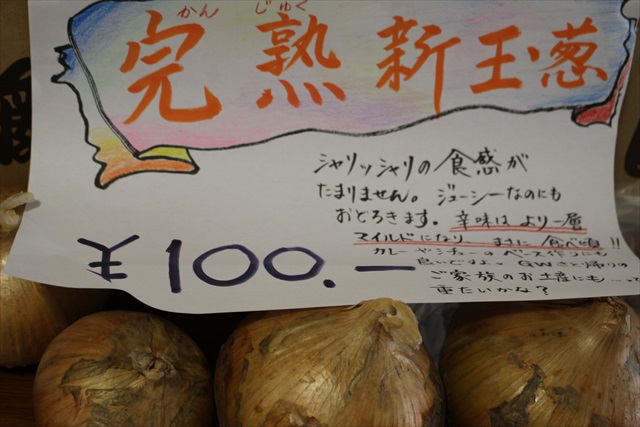 かん じゅく
完熟 新玉葱
シャリッシャリの食感が
たまりません。ジューシーなのにも
おどろきます。辛味はより一層
マイルドになり、まさに食べ頃!!
カレーやシチューのベース作りにも
良いですよ。GWの里帰りの
ご家族のお土産にも……
重たいかな?
¥100.―